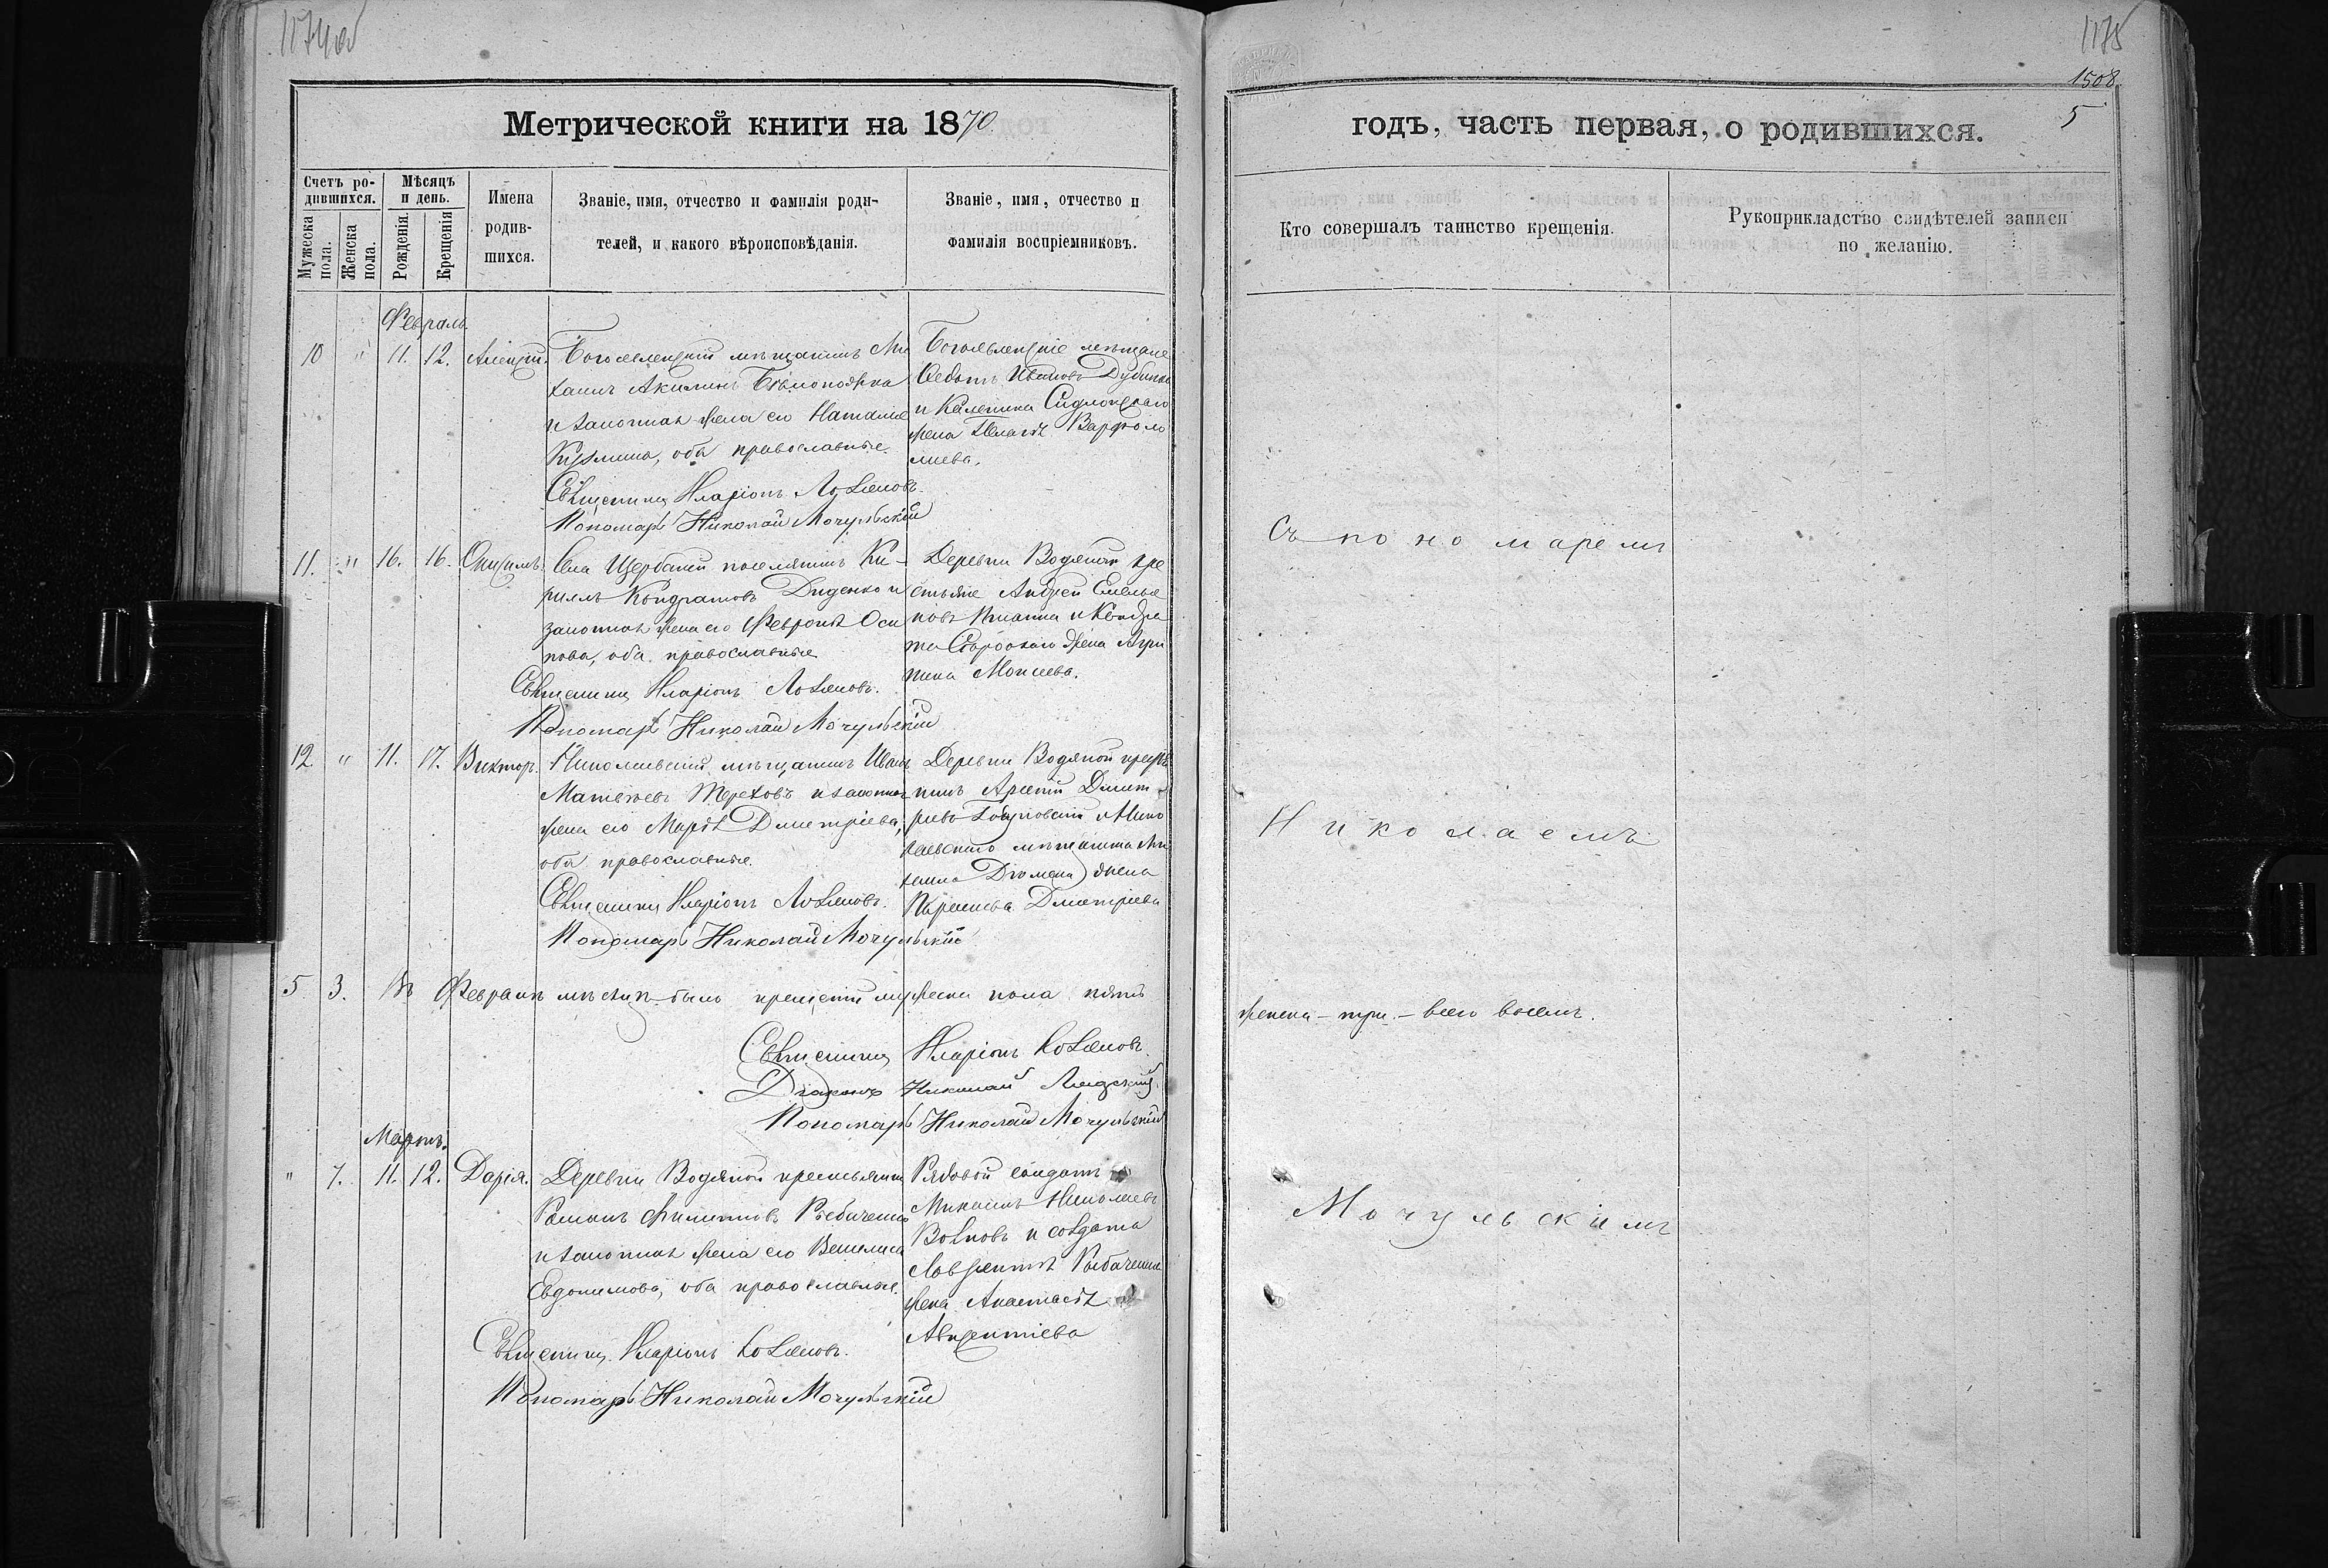 1174об
Метрической книги на 1870.
Счетъ ро-
дившихся.
Мужеска
пола.
Женска
пола.
Мѣсяцъ
и день.
Рожденія.
Крещенія
Имена
родив-
шихся.
Званіе, имя, отчество и фамилія роди-
телей, и какого вѣроисповѣданія.
Званіе, имя, отчество и
фамилія воспріемниковъ.
Февраль.
10 " 11. 12. Алексѣй.
Богоявленскій мѣщанинъ Ми
хаилъ Акимовъ
и законная жена его Наталія
Кузмина, оба православные.
Священникъ Иларіонъ
Пономарь Николай Мочульскій
Богоявленскіе мѣщане
Федотъ Ивановъ
и
жена Пелагія Варфоло
миева.
11. " 16. 16. Онисимъ.
Села Щербани поселянинъ Ки-
риллъ Кондратовъ Диденко и
законная жена его Февронія Оси
пова, оба православные
Священникъ Иларіонъ
Пономарь Николай Мочульскій
Деревни Водяной кре
стьяне Андрей Емелья
новъ и Кондра
та жена Агри
пина Моисеева.
12. " 11. 17. Викторъ.
Николаевскій мѣщанинъ Иванъ
Матвѣевъ Тереховъ и законная
жена его Марія Дмитріева,
оба православные.
Священникъ Иларіонъ
Пономарь Николай Мочульскій
Деревни Водяной крестья
нинъ Арсеній Дмит
ріевъ и Нико
лаевскаго мѣщанина Ми
хаила жена
Дмитріева
5 3. Въ Февралѣ мѣсяцѣ было крещеній мужеска пола пять
Священникъ Иларіонъ
Діаконъ Николай
Пономарь Николай Мочульскій
Мартъ.
" 7. 11. 12. Дарія.
Деревни Водяной крестьянинъ
Романъ Филиповъ Рыбаченко
и законная жена его
Евдокимова, оба православные.
Священникъ Иларіонъ
Пономарь Николай Мочульскій
Рядовой солдатъ
Николаевъ
Волковъ и солдата
Лаврентія Рыбаченка
жена Анастасія
Авксентіева
1175
1508
5
годъ, часть первая, о родившихся.
Кто совершалъ таинство крещенія.
Рукоприкладство свидѣтелей записи
по желанію.
Съ пономаремъ
Николаемъ
женска - три. - всего восемь.
Мочульскимъ